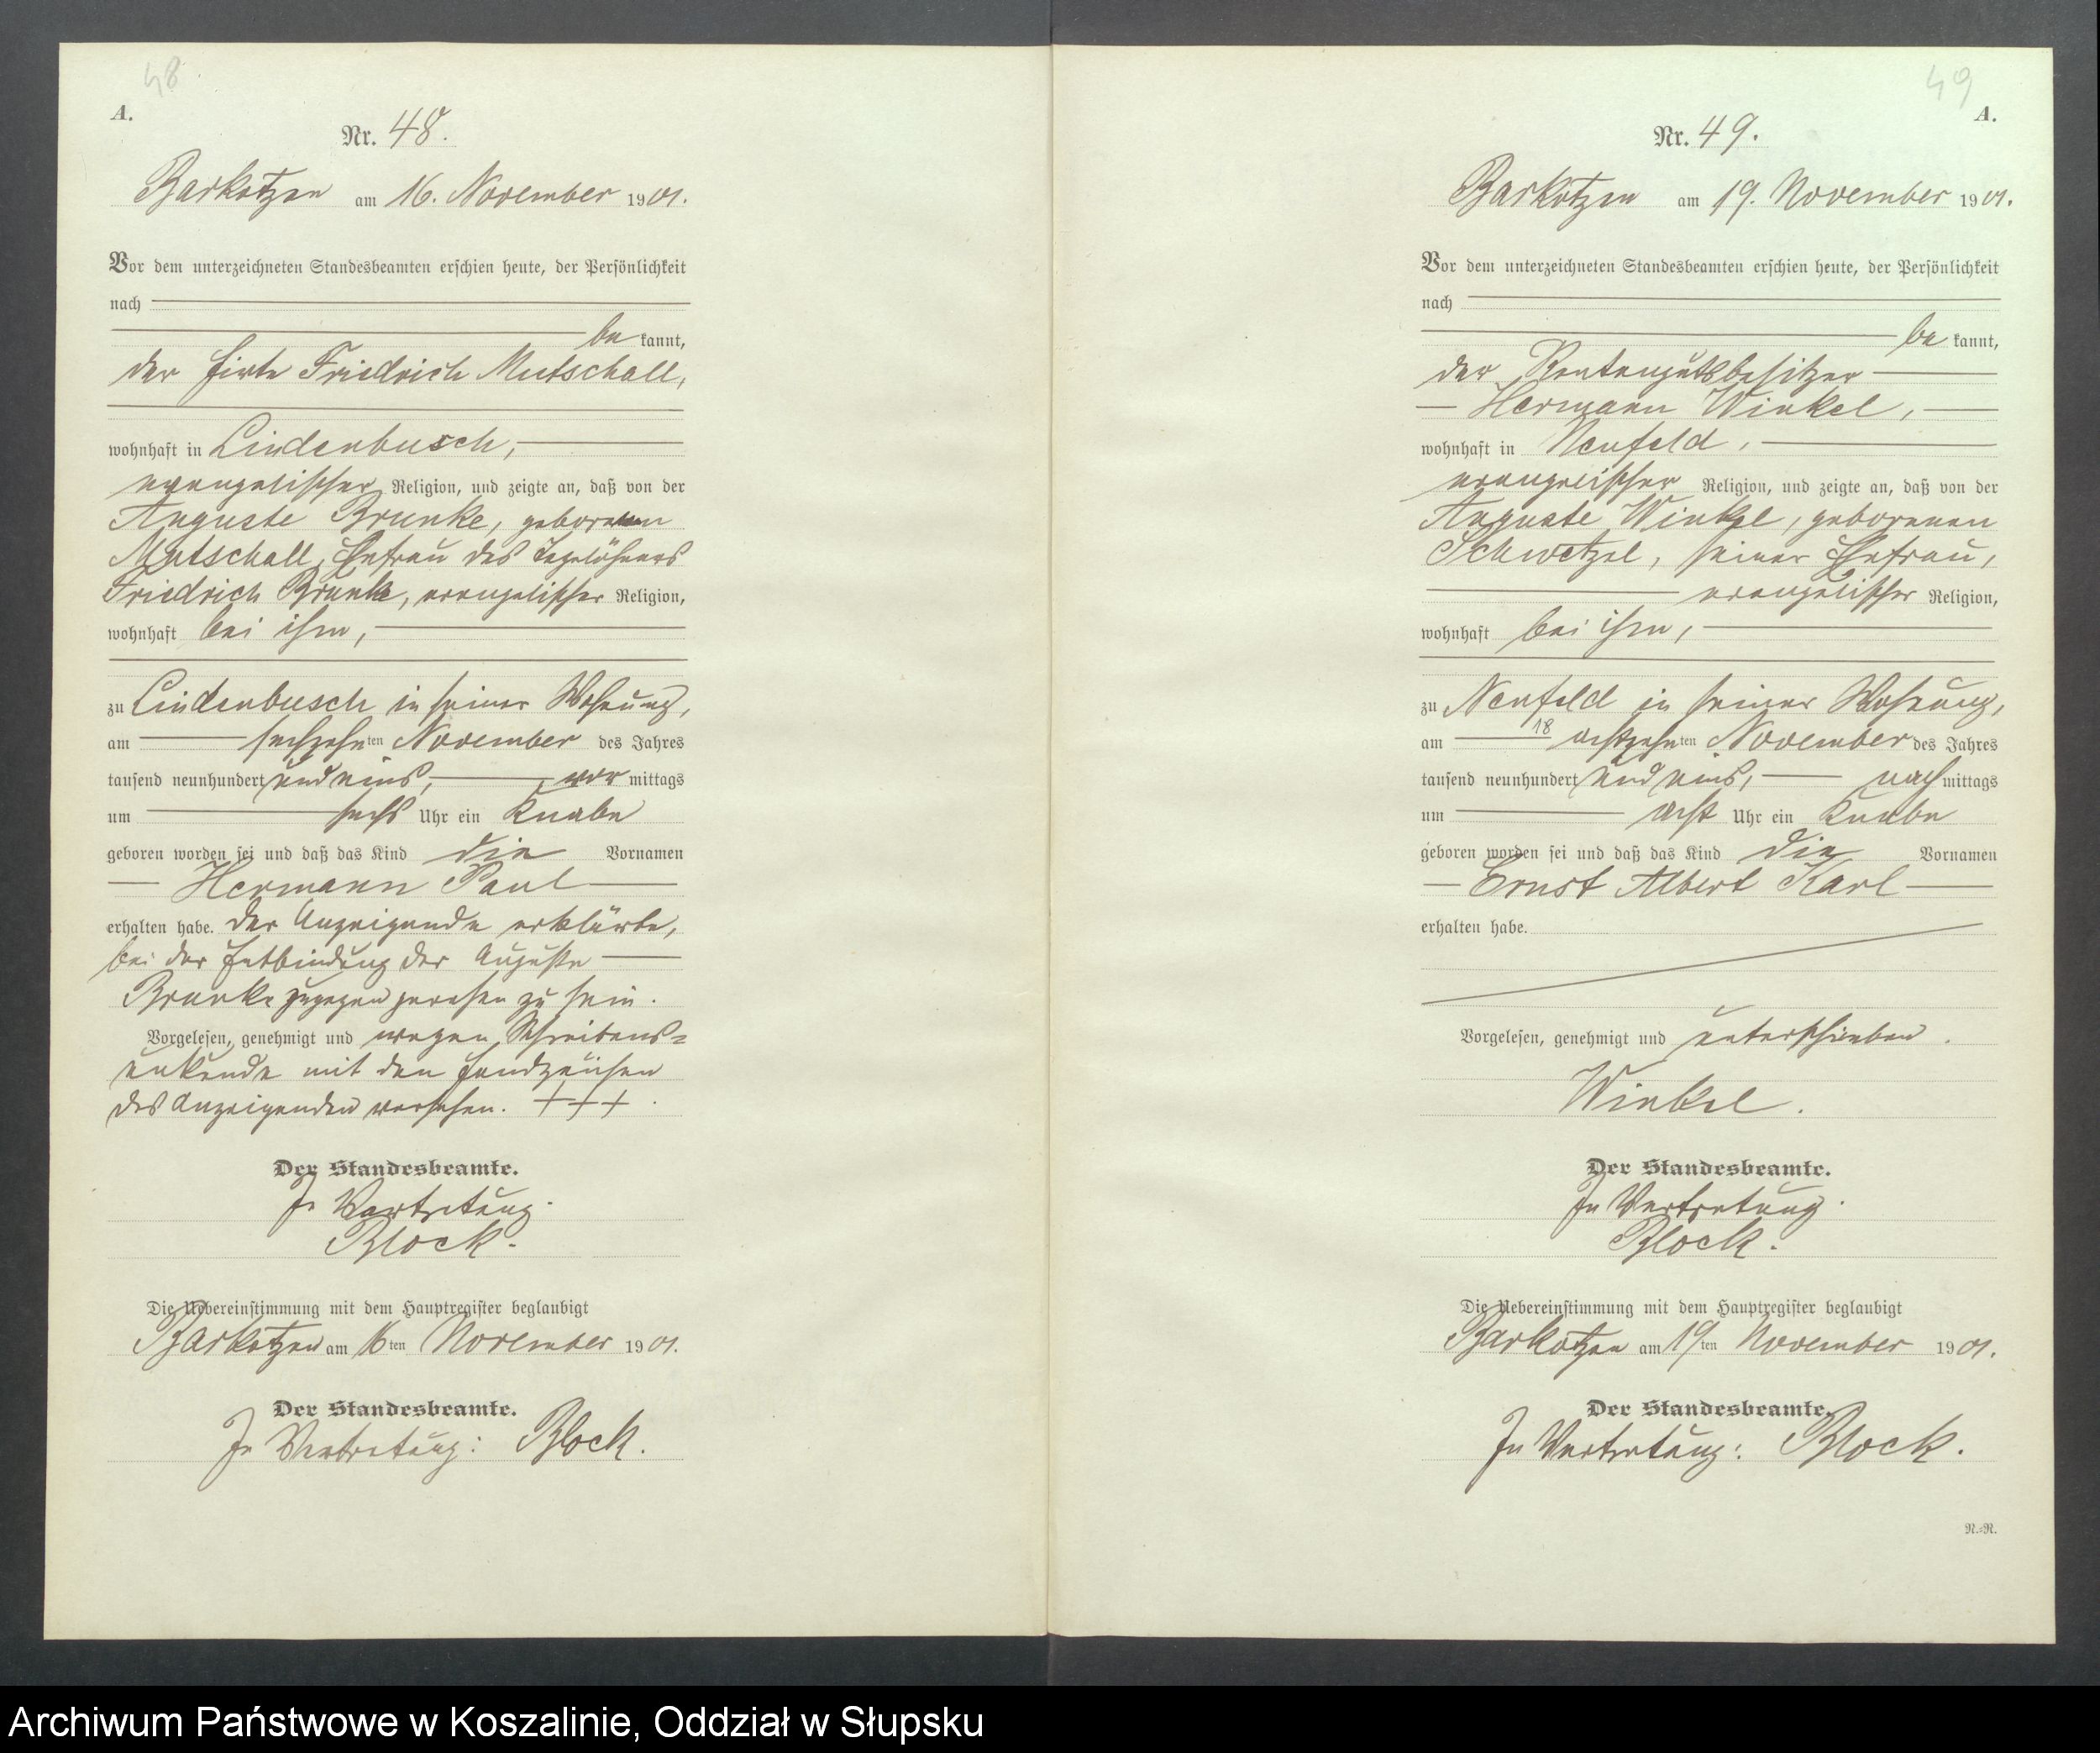 48
A.
Nr. 48.
Barkotzen am 16. November 1901.
Vor dem unterzeichneten Standesbeamten erschien heute, der Persönlichkeit
nach
bekannt,
der Hirte Friedrich Mutschall,
wohnhaft in Lindenbusch,
evangelischer Religion, und zeigte an, daß von der
Auguste Brunke, geborenen
Mutschall, Ehefrau des Tagelöhners
Friedrich Brunke, evangelischer Religion,
wohnhaft bei ihm,
zu Lindenbusch in seiner Wohnung,
am sechszehnten November des Jahres
tausend neunhundert und eins, vormittags
um sechs Uhr ein Knabe
geboren worden sei und daß das Kind die Vornamen
Hermann Paul
erhalten habe. Der Anzeigende erklärte,
bei der Entbindung der Auguste
Brunke zugegen gewesen zu sein.
Vorgelesen, genehmigt und wegen Schreibens-
unkunde mit den Handzeichen
des Anzeigenden versehen. +++.
Der Standesbeamte.
In Vertretung.
Block.
Die Uebereinstimmung mit dem Hauptregister beglaubigt
Barkotzen am 16ten November 1901.
Der Standesbeamte.
In Vertretung: Block.
49
A.
Nr. 49.
Barkotzen am 19. November 1901.
Vor dem unterzeichneten Standesbeamten erschien heute, der Persönlichkeit
nach
bekannt,
der Rentengutsbesitzer
Hermann Winkel,
wohnhaft in Neufeld,
evangelischer Religion, und zeigte an, daß von der
Auguste Winkel, geborenen
Schwetzel, seiner Ehefrau,
evangelischer Religion,
wohnhaft bei ihm,
zu Neufeld in seiner Wohnung,
am 18 achtzehnten November des Jahres
tausend neunhundert und eins, nachmittags
um acht Uhr ein Knabe
geboren worden sei und daß das Kind die Vornamen
Ernst Albert Karl
erhalten habe.
Vorgelesen, genehmigt und unterschrieben.
Winkel.
Der Standesbeamte.
In Vertretung.
Block.
Die Uebereinstimmung mit dem Hauptregister beglaubigt
Barkotzen am 19ten November 1901.
Der Standesbeamte.
In Vertretung: Block.
N.-R.
Archiwum Państwowe w Koszalinie, Oddział w Słupsku